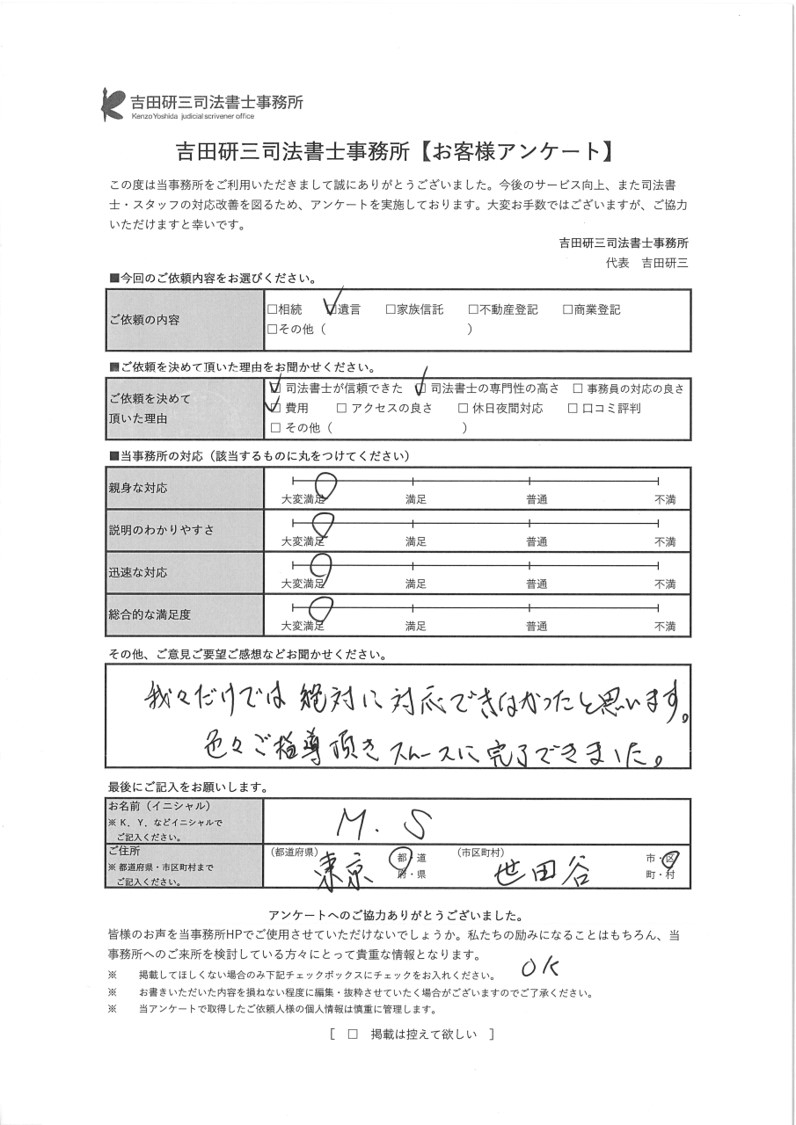 吉田研三司法書士事務所
Kenzo Yoshida judicial scrivener office
吉田研三司法書士事務所【お客様アンケート】
この度は当事務所をご利用いただきまして誠にありがとうございました。今後のサービス向上、また司法書
士・スタッフの対応改善を図るため、アンケートを実施しております。大変お手数ではございますが、ご協力
いただけますと幸いです。
吉田研三司法書士事務所
代表 吉田研三
■今回のご依頼内容をお選びください。
ご依頼の内容
□相続 ☑遺言 □家族信託 □不動産登記 □商業登記
□その他（ ）
■ご依頼を決めて頂いた理由をお聞かせください。
ご依頼を決めて
頂いた理由
☑ 司法書士が信頼できた ☑ 司法書士の専門性の高さ □ 事務員の対応の良さ
☑ 費用 □ アクセスの良さ □ 休日夜間対応 □ 口コミ評判
□ その他（ ）
■当事務所の対応（該当するものに丸をつけてください）
親身な対応
大変満足 満足 普通 不満
説明のわかりやすさ
大変満足 満足 普通 不満
迅速な対応
大変満足 満足 普通 不満
総合的な満足度
大変満足 満足 普通 不満
その他、ご意見ご要望ご感想などお聞かせください。
我々だけでは絶対に対応できなかったと思います。
色々ご指導頂きスムースに完了できました。
最後にご記入をお願いします。
お名前（イニシャル）
※ K．Y．などイニシャルで
ご記入ください。
M.S
ご住所
※ 都道府県・市区町村まで
ご記入ください。
（都道府県） 東京 都・道
府・県
（市区町村） 世田谷 市・区
町・村
アンケートへのご協力ありがとうございました。
皆様のお声を当事務所HPでご使用させていただけないでしょうか。私たちの励みになることはもちろん、当
事務所へのご来所を検討している方々にとって貴重な情報となります。
※ 掲載してほしくない場合のみ下記チェックボックスにチェックをお入れください。 OK
※ お書きいただいた内容を損ねない程度に編集・抜粋させていたく場合がございますのでご了承ください。
※ 当アンケートで取得したご依頼人様の個人情報は慎重に管理します。
［ □ 掲載は控えて欲しい ］